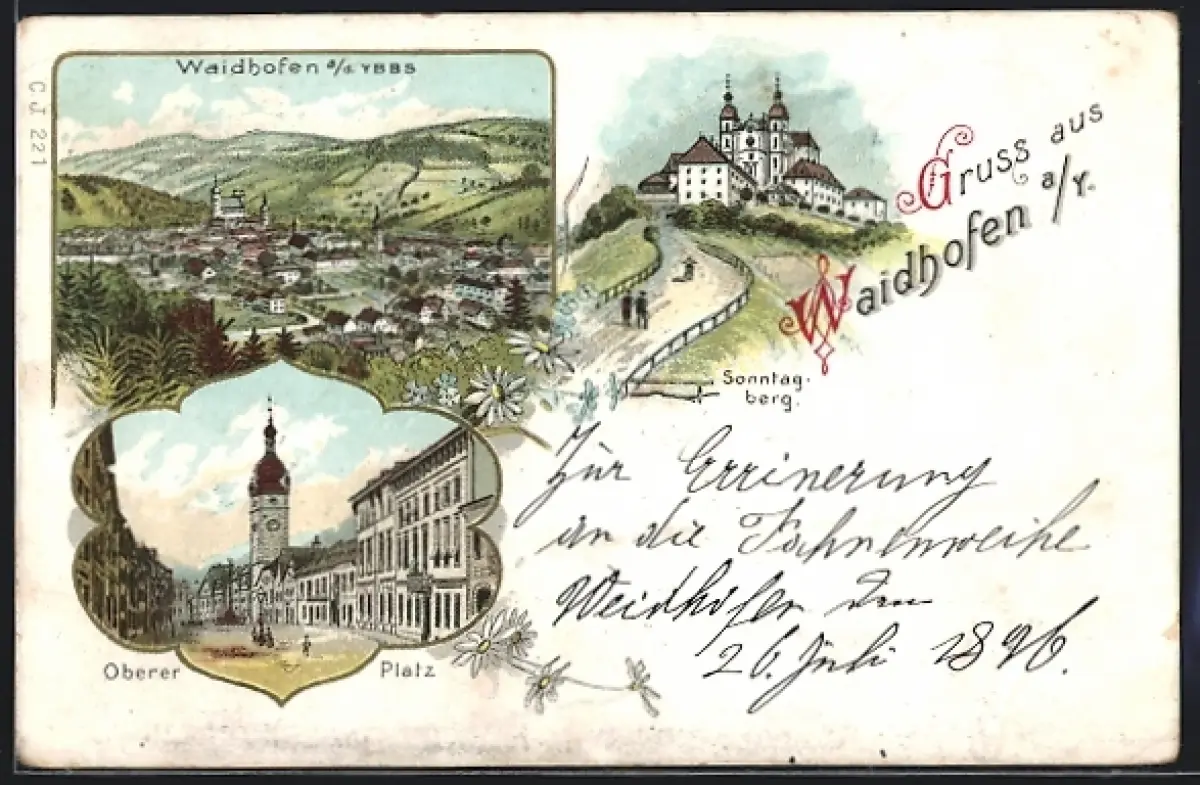 C.J. 221
Waidhofen a/d. YBBS
Gruss aus
Waidhofen a/Y.
Sonntag-
berg.
Oberer Platz
Zur Errinerung
an die Fahnenweihe
Weidhofen den
26. Juli 1896.